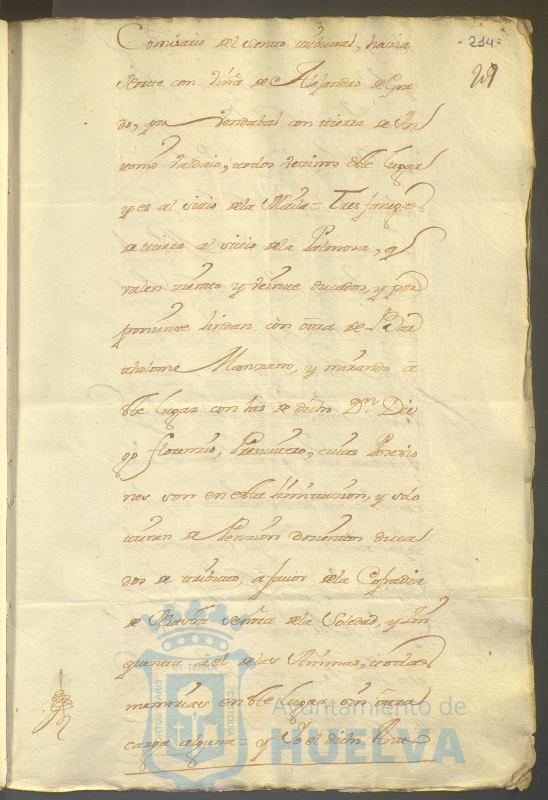 - 234 -
Comisario del Santo tribunal, hazia
Norte con viña de Alejandro de Gra
do, por vendabal con tierra de An
tonio Valdaio, todos vezinos deste lugar
y es al sitio de la = Tres fanegas
de tierra al sitio de la Palmosa, q
valen ziento y veinte ducados, y por
poniente lindan con otra de Bar
tholome Manzano, y mirando à
este lugar con las de dicho Dn. Die
go Florenzio, Presvitero, cuias Posesio
nes son en esta limitazion, y solo
tienen de Pension doszientos duca
dos de tributo, à favor de la Cofradia
de Nuestra Señora de la Soledad, y Zin
quenta à el de las Animas, todas
en este lugar sin otra
carga alguna = y Yo el dicho
Ayuntamiento de
HUELVA